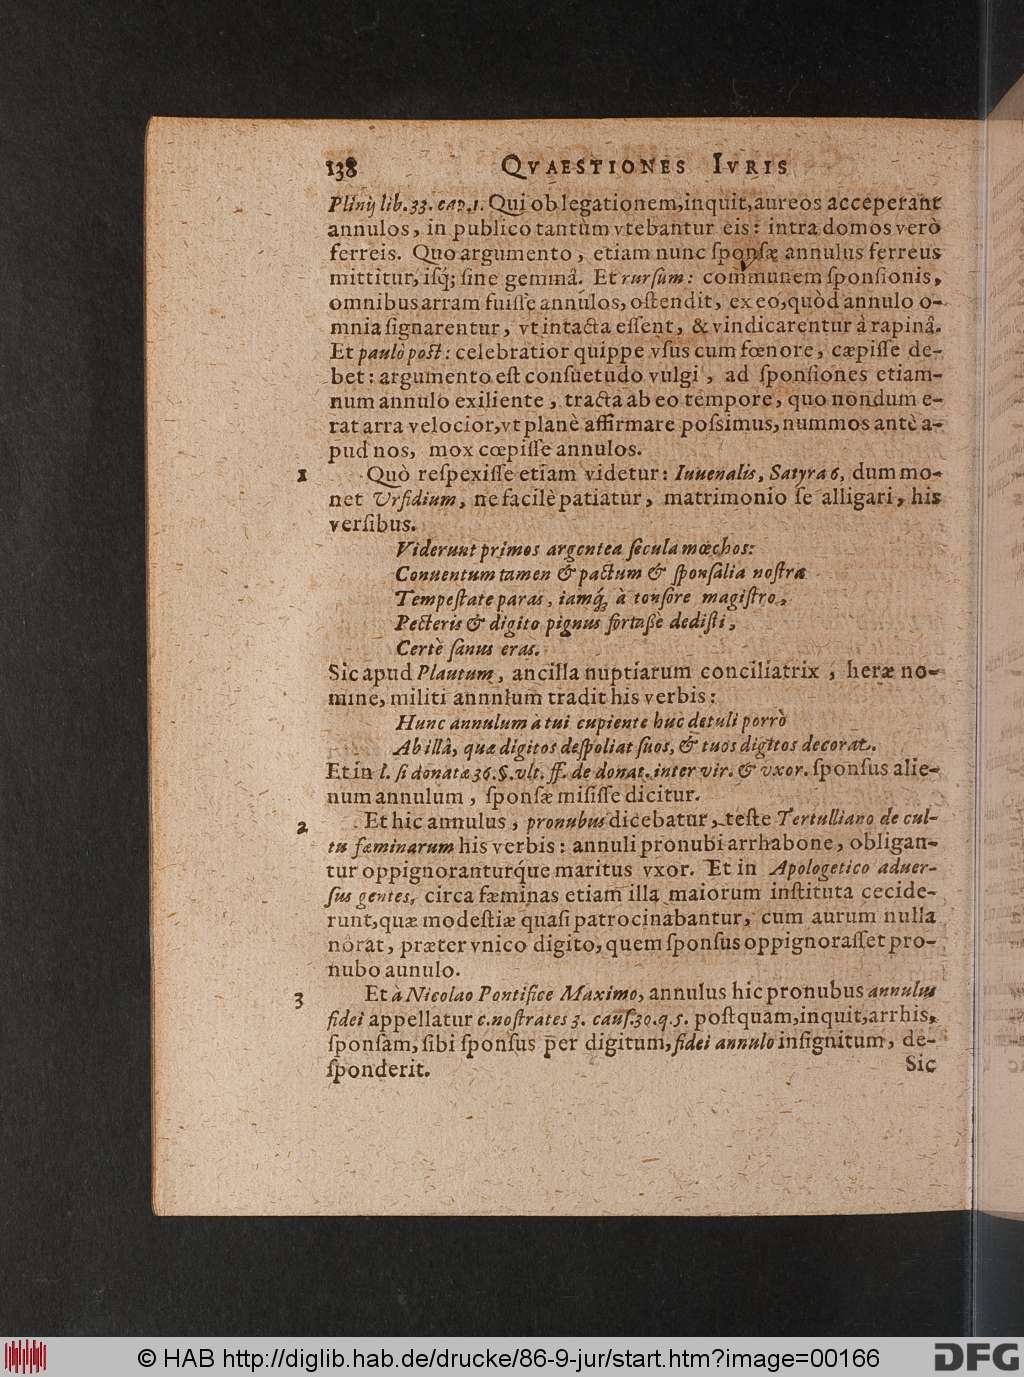 138 QVAESTIONES IVRIS
Plinij lib. 33. cap. 1. Qui ob legationem, inquit, aureos acceperant
annulos, in publico tantùm vtebantur eis: intra domos verò
ferreis. Quo argumento, etiam nunc ſponſæ annulus ferreus
mittitur, iſq́; ſine gemmâ. Et rurſùm: communem ſponſionis,
omnibus arram fuiſſe annulos, oſtendit, ex eo, quòd annulo o-
mnia ſignarentur, vt intacta eſſent, & vindicarentur à rapinâ.
Et paulò pòst: celebratior quippe vſus cum fœnore, cæpiſſe de-
bet: argumento eſt conſuetudo vulgi, ad ſponſiones etiam-
num annulo exiliente, tracta ab eo tempore, quo nondum e-
rat arra velocior, vt planè affirmare poſsimus, nummos antè a-
pud nos, mox cœpiſſe annulos.
1 Quò reſpexiſſe etiam videtur: Iuuenalis, Satyra 6, dum mo-
net Vrſidium, ne facilè patiatur, matrimonio ſe alligari, his
verſibus.
Viderunt primos argentea ſecula mœchos:
Conuentum tamen & pactum & ſponſalia noſtra
Tempeſtate paras, iamq́, à tonſore magiſtro,
Pecteris & digito pignus fortaßè dediſti,
Certè ſanus eras.
Sic apud Plautum, ancilla nuptiarum conciliatrix, heræ no-
mine, militi annnlum tradit his verbis:
Hunc annulum à tui cupiente huc detuli porrò
Ab illâ, quæ digitos deſpoliat ſuos, & tuos digitos decorat.
Et in l. ſi donatæ 36. §. vlt. ff. de donat. inter vir. & vxor. ſponſus alie-
num annulum, ſponſæ miſiſſe dicitur.
2 Et hic annulus, pronubus dicebatur, teſte Tertulliano de cul-
tu fæminarum his verbis: annuli pronubi arrhabone, obligan-
tur oppignoranturq́ue maritus vxor. Et in Apologetico aduer-
ſus gentes, circa fæminas etiam illa maiorum inſtituta cecide-
runt, quæ modeſtiæ quaſi patrocinabantur, cum aurum nulla
norat, præter vnico digito, quem ſponſus oppignoraſſet pro-
nubo aunulo.
3 Et à Nicolao Pontifice Maximo, annulus hic pronubus annulus
fidei appellatur c. noſtrates 3. cauſ. 30. q. 5. poſtquam, inquit, arrhis,
ſponſam, ſibi ſponſus per digitum, fidei annulo inſignitum, de-
ſponderit.
Sic
© HAB http://diglib.hab.de/drucke/86-9-jur/start.htm?image=00166
DFG